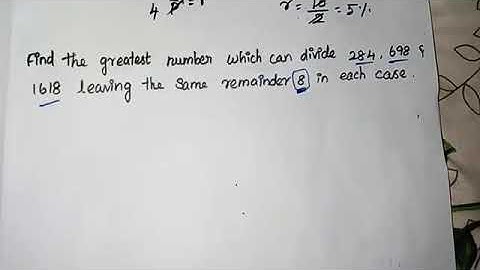 4
r = 10/2 = 5%
Find the greatest number which can divide 284, 698 &
1618 leaving the same remainder 8 in each case.